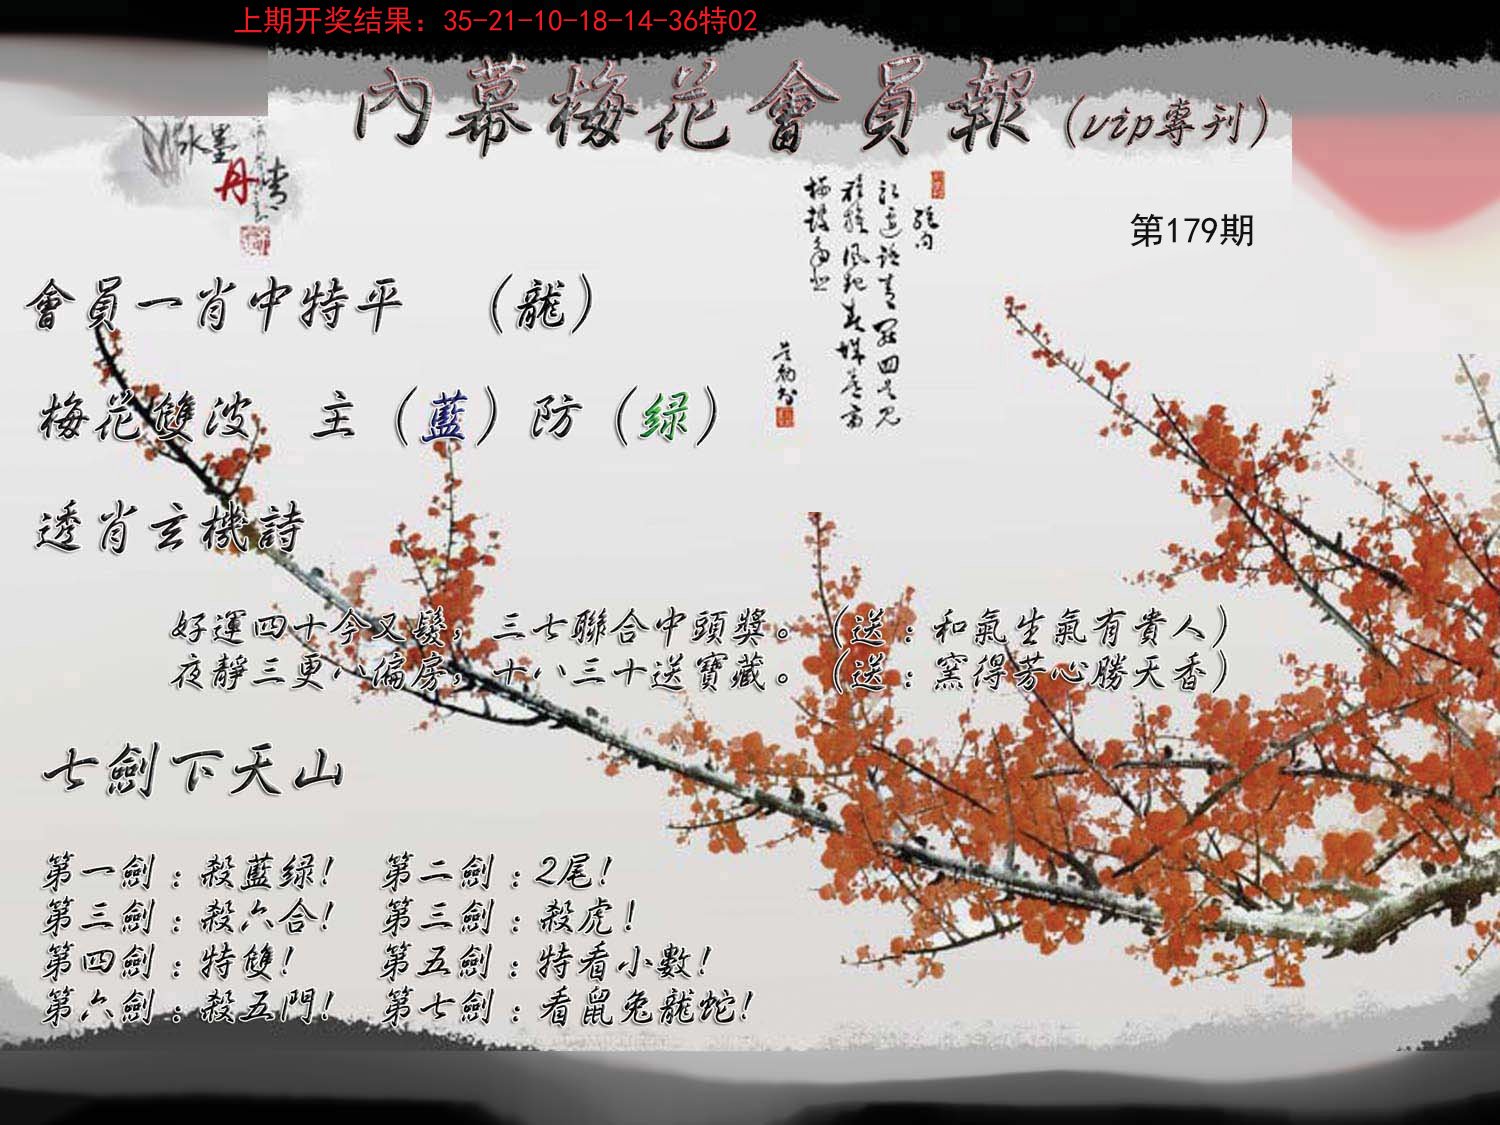 上期开奖结果：35-21-10-18-14-36特02
內幕梅花會員報（vip專刊）
水墨
丹青
第179期
會員一肖中特平　（龍）
梅花雙波　主（藍）防（绿）
透肖玄機詩
好運四十今又髮，三七聯合中頭獎。（送：和氣生氣有貴人）
夜靜三更八偏房，十八三十送寶藏。（送：窯得芳心勝天香）
七劍下天山
第一劍：殺藍绿！　第二劍：2尾！
第三劍：殺六合！　第三劍：殺虎！
第四劍：特雙！　第五劍：特看小數！
第六劍：殺五門！　第七劍：看鼠兔龍蛇！